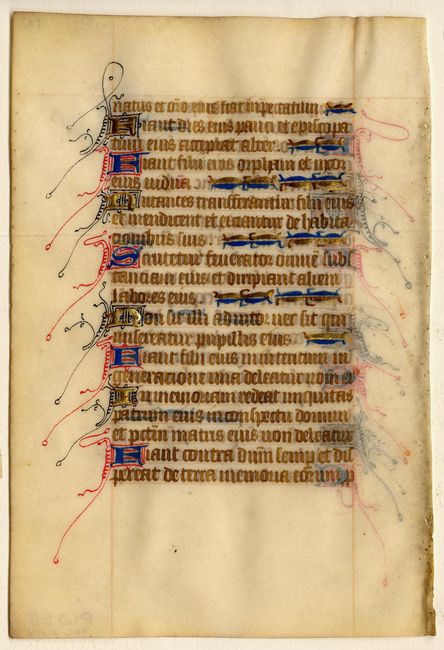 natus et oro eius fiat in peccatum
Fiant dies eius pauci et episcopa
tum eius accipiat alter
Fiant filii eius orphani et uxor
eius vidua
Nutantes transferantur filii eius
et mendicent et eiciantur de habita
cionibus suis
Scrutetur fenerator omnem subs
tanciam eius et diripiant alieni
labores eius
Non sit illi adiutor nec sit qui
misereatur pupillis eius
Fiant filii eius in interitum in
generacione una deleatur nomen
In memoriam redeat iniquitas
patrum eius in conspectu domini
et petm matris eius non deleatur
Fiant contra dnm semp et dis
pereat de terra memoria eorum p